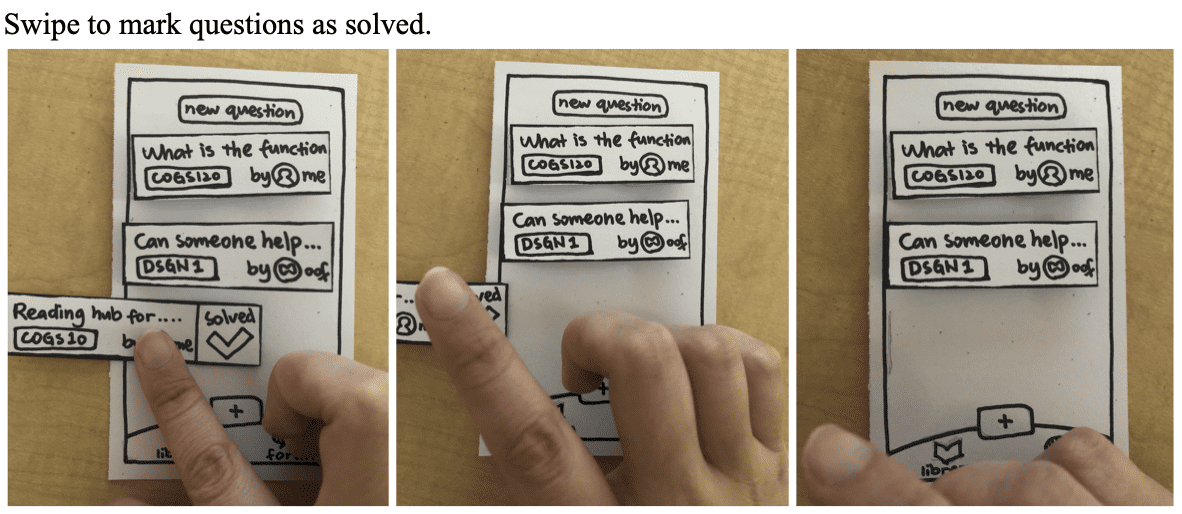 Swipe to mark questions as solved.
new question
What is the function
COGS120 by me
Can someone help...
DSGN1 by oof
Reading hub for.... Solved
COGS10
+
for...
new question
What is the function
COGS120 by me
Can someone help...
DSGN1 by oof
+
new question
What is the function
COGS120 by me
Can someone help...
DSGN1 by oof
+